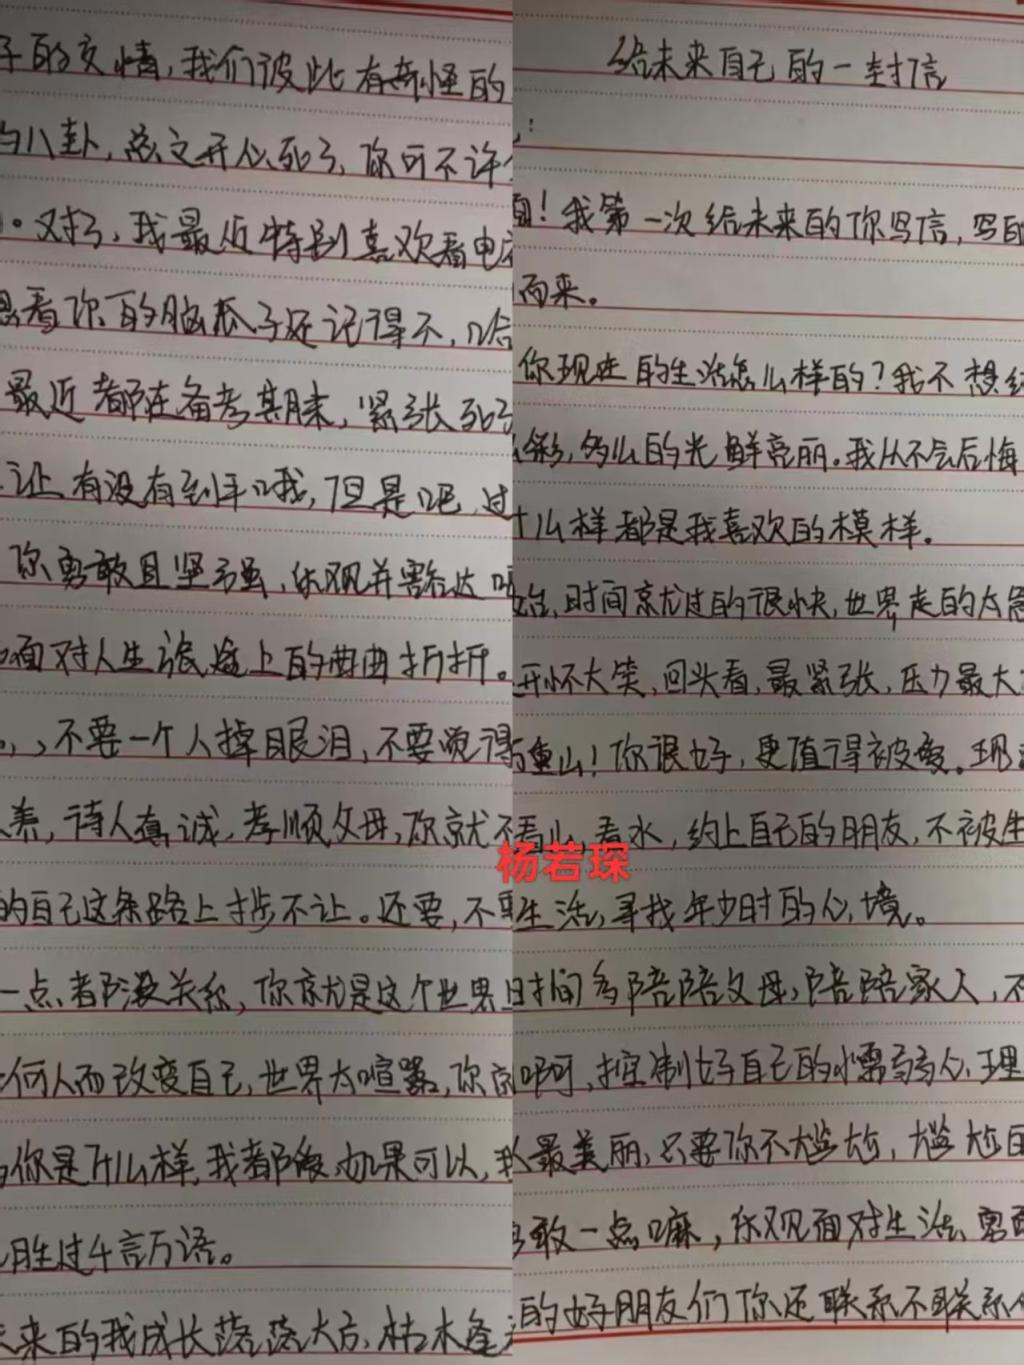 子的交情,我们彼此有奇怪的
的八卦,总之开心死了,你可不许
。对了,我最近特别喜欢看电
看你的脑瓜子还记得不,哈
最近都在备考期末,紧张死了
让有没有到手哦,但是吧,过
你勇敢且坚强,乐观并豁达
面对人生旅途上的曲曲折折。
不要一个人掉眼泪,不要觉得
养,待人真诚,孝顺父母,你就不
的自己这条路上寸步不让。还要,不要
一点都没关系,你就是这个世界
何人而改变自己,世界太喧嚣,你
你是什么样,我都爱,如果可以,我
胜过千言万语。
未来的我成长落落大方,枯木逢
给未来自己的一封信
:
!我第一次给未来的你写信,写的
而来。
你现在的生活怎么样的?我不想
彩,多么的光鲜亮丽。我从不会后悔
什么样都是我喜欢的模样。
始,时间就过的很快,世界走的太
开怀大笑,回头看,最紧张,压力最大
重山!你很好,更值得被爱。现
看山,看水,约上自己的朋友,不被生
生活,寻找年少时的心境。
时间多陪陪父母,陪陪家人,不
啊,控制好自己的懦弱心理
最美丽,只要你不尴尬,尴尬的
勇敢一点嘛,乐观面对生活,勇敢
的好朋友们你还联系不联系
杨若琛